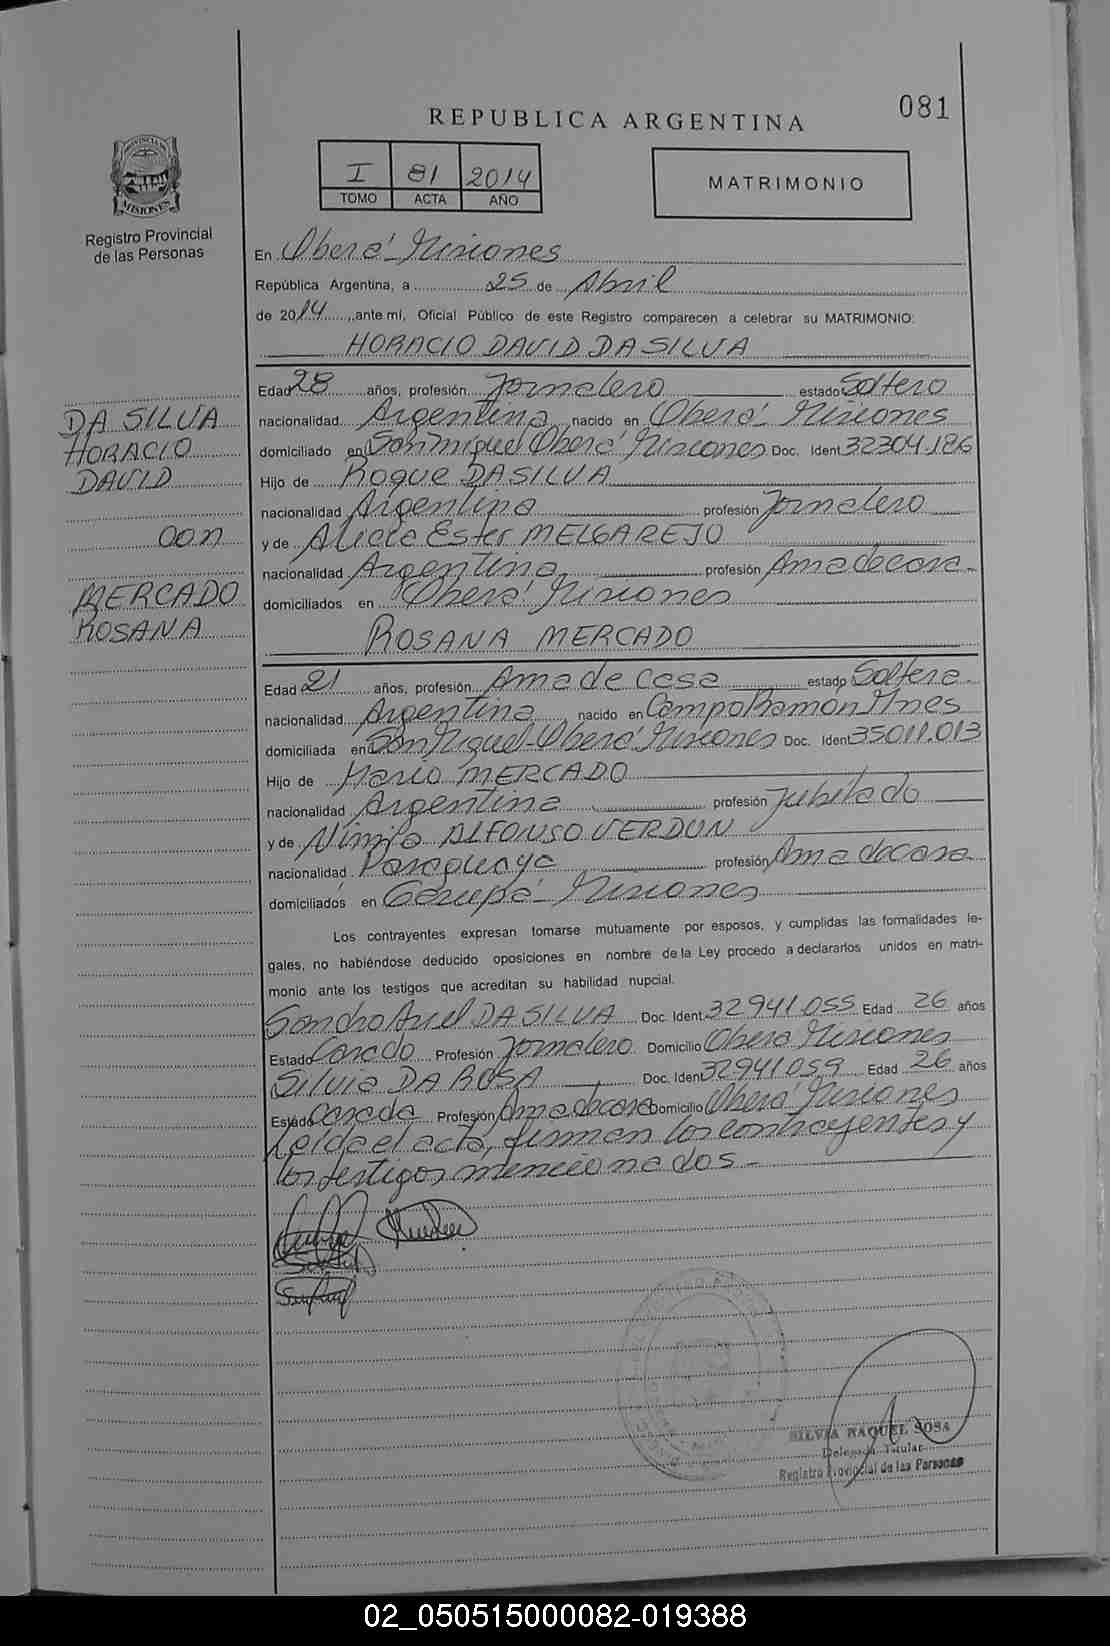 081
REPUBLICA ARGENTINA
I 81 2014
TOMO ACTA AÑO
MATRIMONIO
PROVINCIA DE
MISIONES
Registro Provincial
de las Personas
En Oberá - Misiones
República Argentina, a 25 de Abril
de 2014, ante mí, Oficial Público de este Registro comparecen a celebrar su MATRIMONIO:
HORACIO DAVID DA SILVA
Edad 28 años, profesión Jornalero estado Soltero
nacionalidad Argentina nacido en Oberá - Misiones
domiciliado en San Miguel Oberá Misiones Doc. Ident 32304.186
Hijo de Roque DA SILVA
nacionalidad Argentina profesión Jornalero
y de Alicia Ester MELGAREJO
nacionalidad Argentina profesión Ama de casa
domiciliados en Oberá Misiones
DA SILVA
HORACIO
DAVID
con
MERCADO
ROSANA
ROSANA MERCADO
Edad 21 años, profesión Ama de Casa estado Soltera
nacionalidad Argentina nacido en Campo Ramón Mnes
domiciliada en San Miguel - Oberá Misiones Doc. Ident 35011.013
Hijo de Mario MERCADO
nacionalidad Argentina profesión Jubilado
y de ALFONSO VERDUN
nacionalidad Paraguaya profesión Ama de casa
domiciliados en Garupá - Misiones
Los contrayentes expresan tomarse mutuamente por esposos, y cumplidas las formalidades le-
gales, no habiéndose deducido oposiciones en nombre de la Ley procedo a declararlos unidos en matri-
monio ante los testigos que acreditan su habilidad nupcial.
Sandro Ariel DA SILVA Doc. Ident 32941055 Edad 26 años
Estado Casado Profesión Jornalero Domicilio Oberá Misiones
Silvia DA ROSA Doc. Ident 32941059 Edad 26 años
Estado Casada Profesión Ama de casa Domicilio Oberá Misiones
Leída el acta, firman los contrayentes y
los testigos mencionados -
SILVIA RAQUEL SOSA
Delegada Titular
Registro Provincial de las Personas
02_050515000082-019388